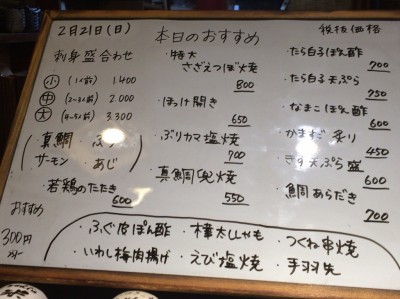 2月21日(日)
本日のおすすめ
税抜価格
刺身盛合わせ
小 (1人前) 1.400
中 (2~3人前) 2.000
大 (4~5人前) 3.300
真鯛・ぶり
サーモン・あじ
・若鶏のたたき
600
・特大
さざえつぼ焼
800
・ほっけ開き
650
・ぶりカマ塩焼
700
・真鯛兜焼
550
・たら白子ぽん酢
700
・たら白子天ぷら
750
・なまこぽん酢
600
・かまだ炙り
450
・きす天ぷら盛
600
・鯛あらだき
700
おすすめ
300円
・ふぐ皮ぽん酢 ・樺太ししゃも ・つくね串焼
・いわし梅肉揚げ ・えび塩焼 ・手羽先